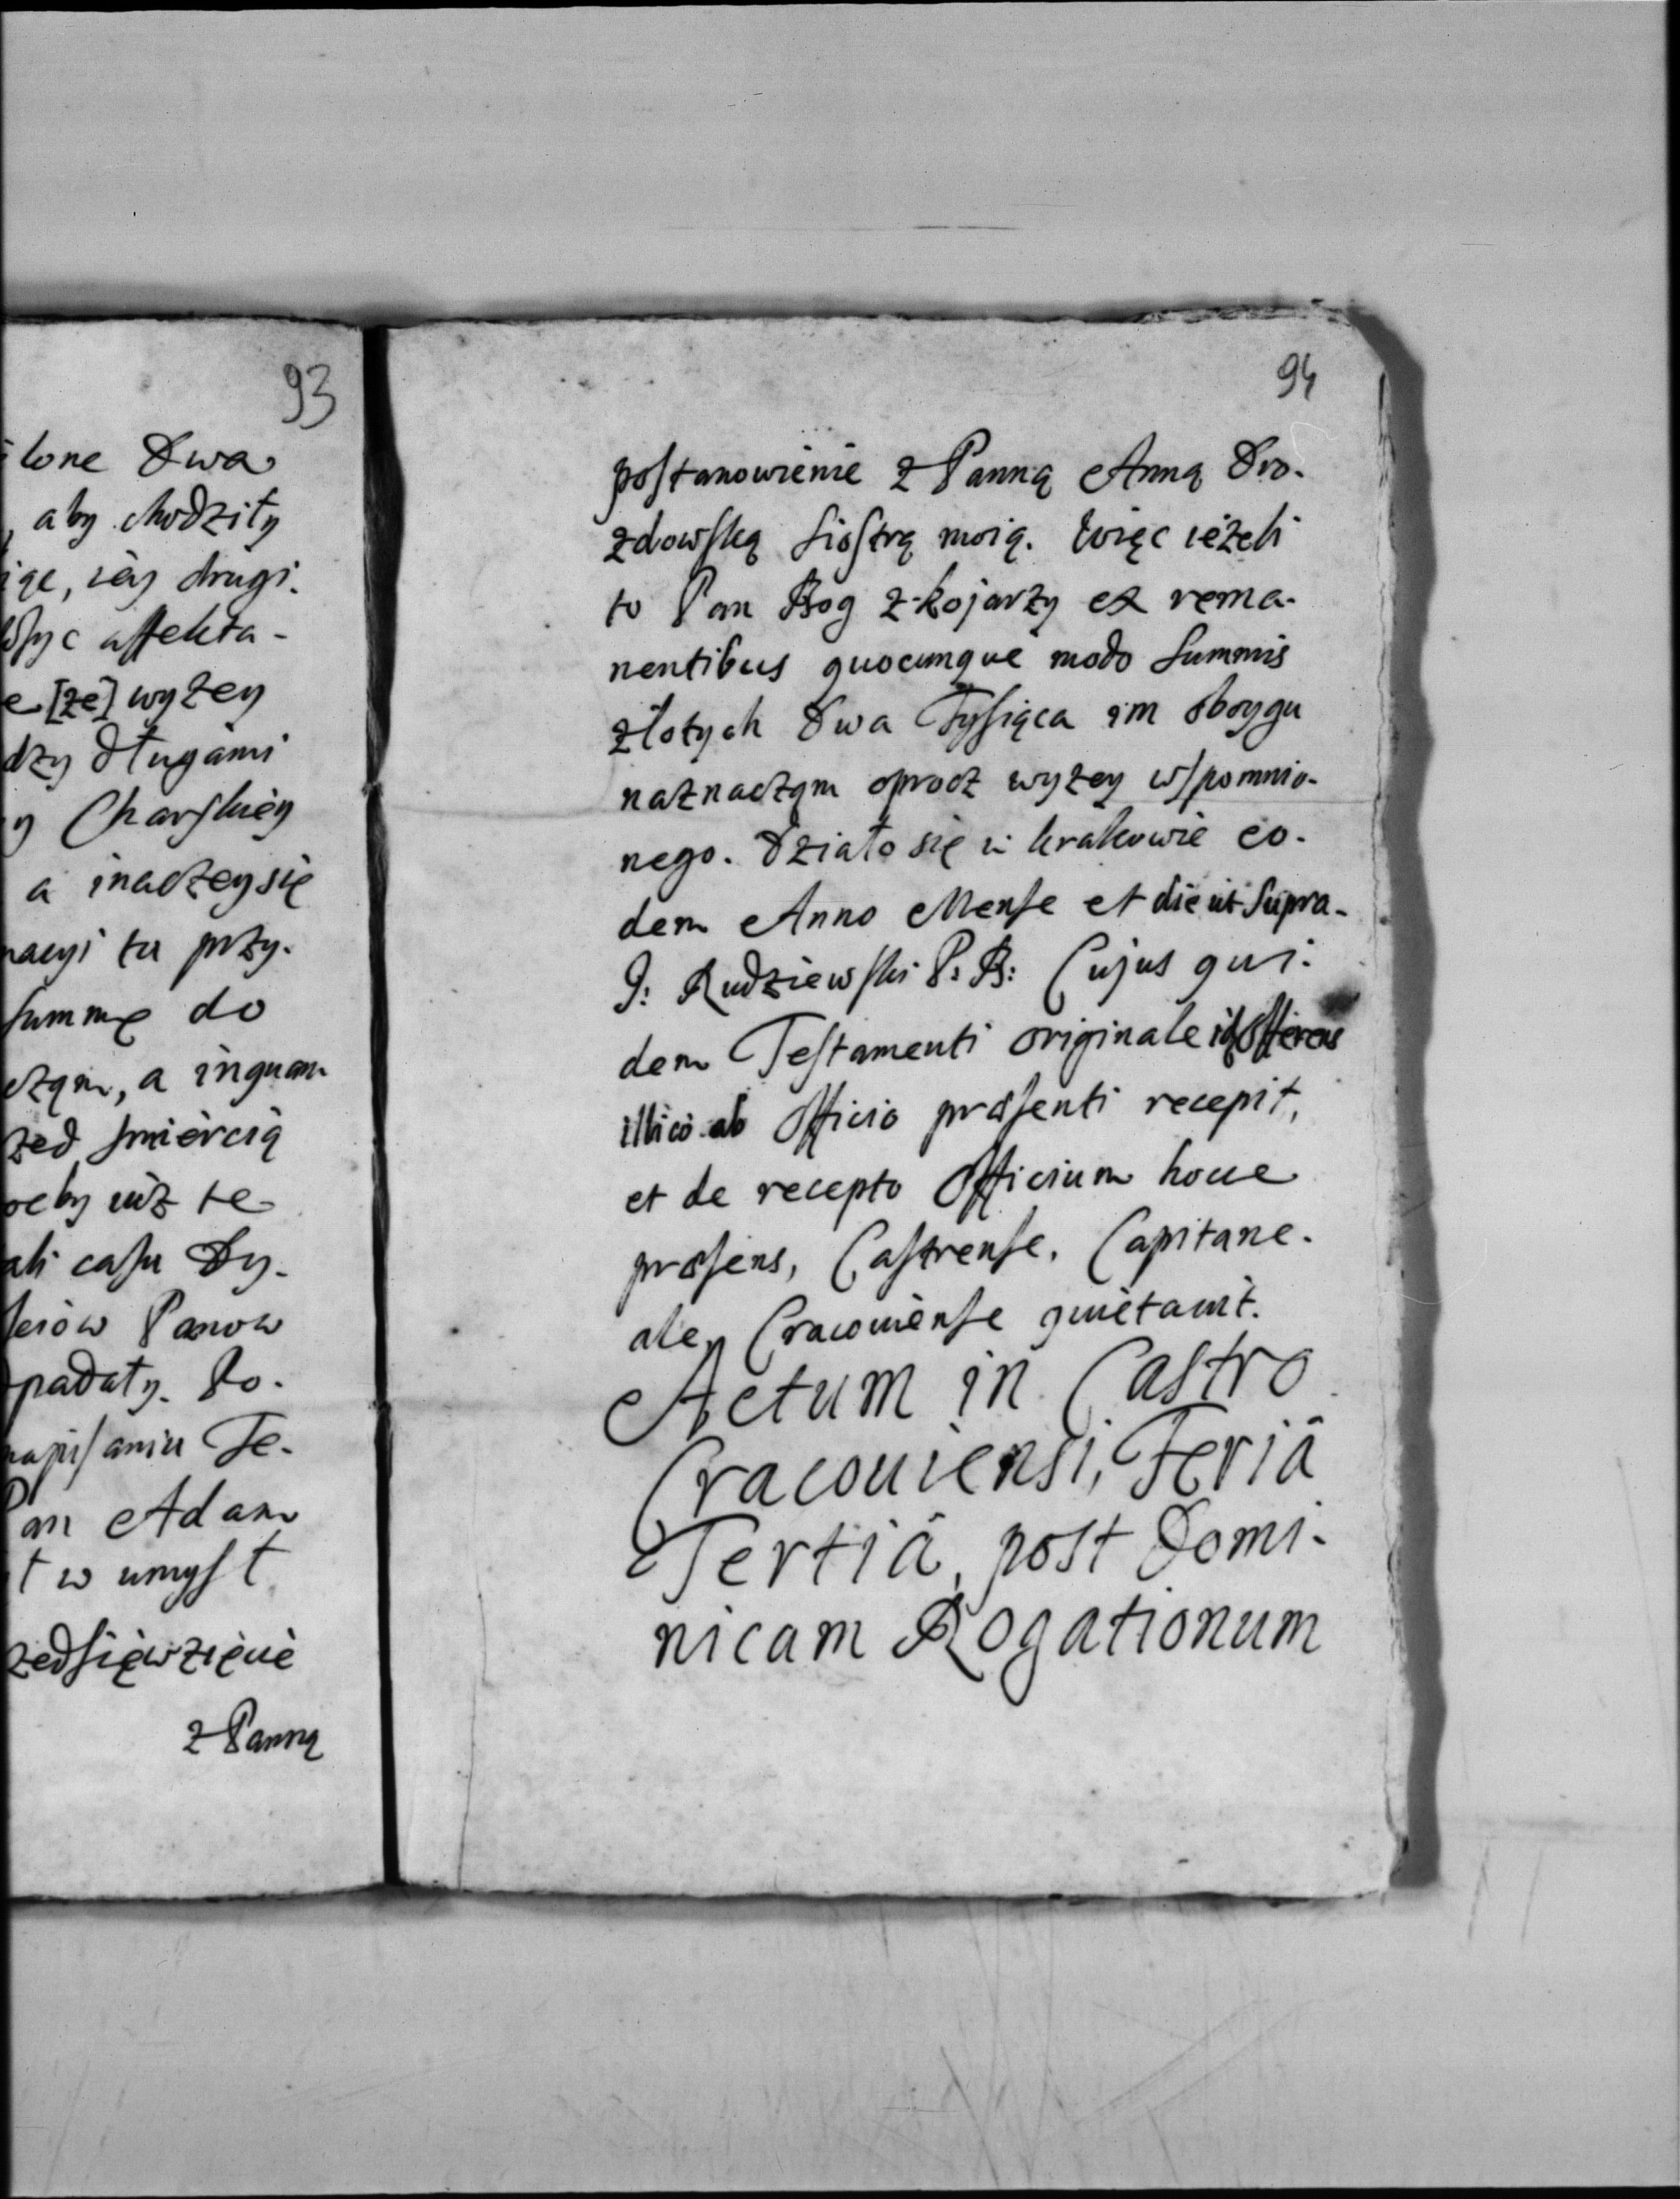 93
lone Dwa
, aby chodziły
iąc, iey drugi.
dosyc affekta-
e [ze] wyzey
dzy długami
y Charskiey
a inaczey się
nacyi tu przy.
summę do
czam, a inquam
zed smiercią
oeby iuż te
ali casu Dy.
Panow
padały. Po.
napisaniu Te.
Pan Adam
ł w umysł
zedsięwzięcie
z Panną
94
postanowienie z Panną Anną Dro.
zdowską siostrą moią. Więc ieżeli
to Pan Bog z-kojarzy ex rema-
nentibus quocunque modo summis
złotych Dwa Tysiąca im oboygu
naznaczam oprocz wyzey wspomnio-
nego. Działo się w krakowie eo-
dem Anno Mense et die ut supra.
J: Rudziewski P: B: Cujus qui-
dem Testamenti originale id offerens
illico ab Officio præsenti recepit,
et de recepto Officium hocce
præsens, Castrense, Capitane-
ale, Cracouiense quietauit.
Actum in Castro
Cracouiensi, Feriâ
Tertiâ, post Domi-
nicam Rogationum